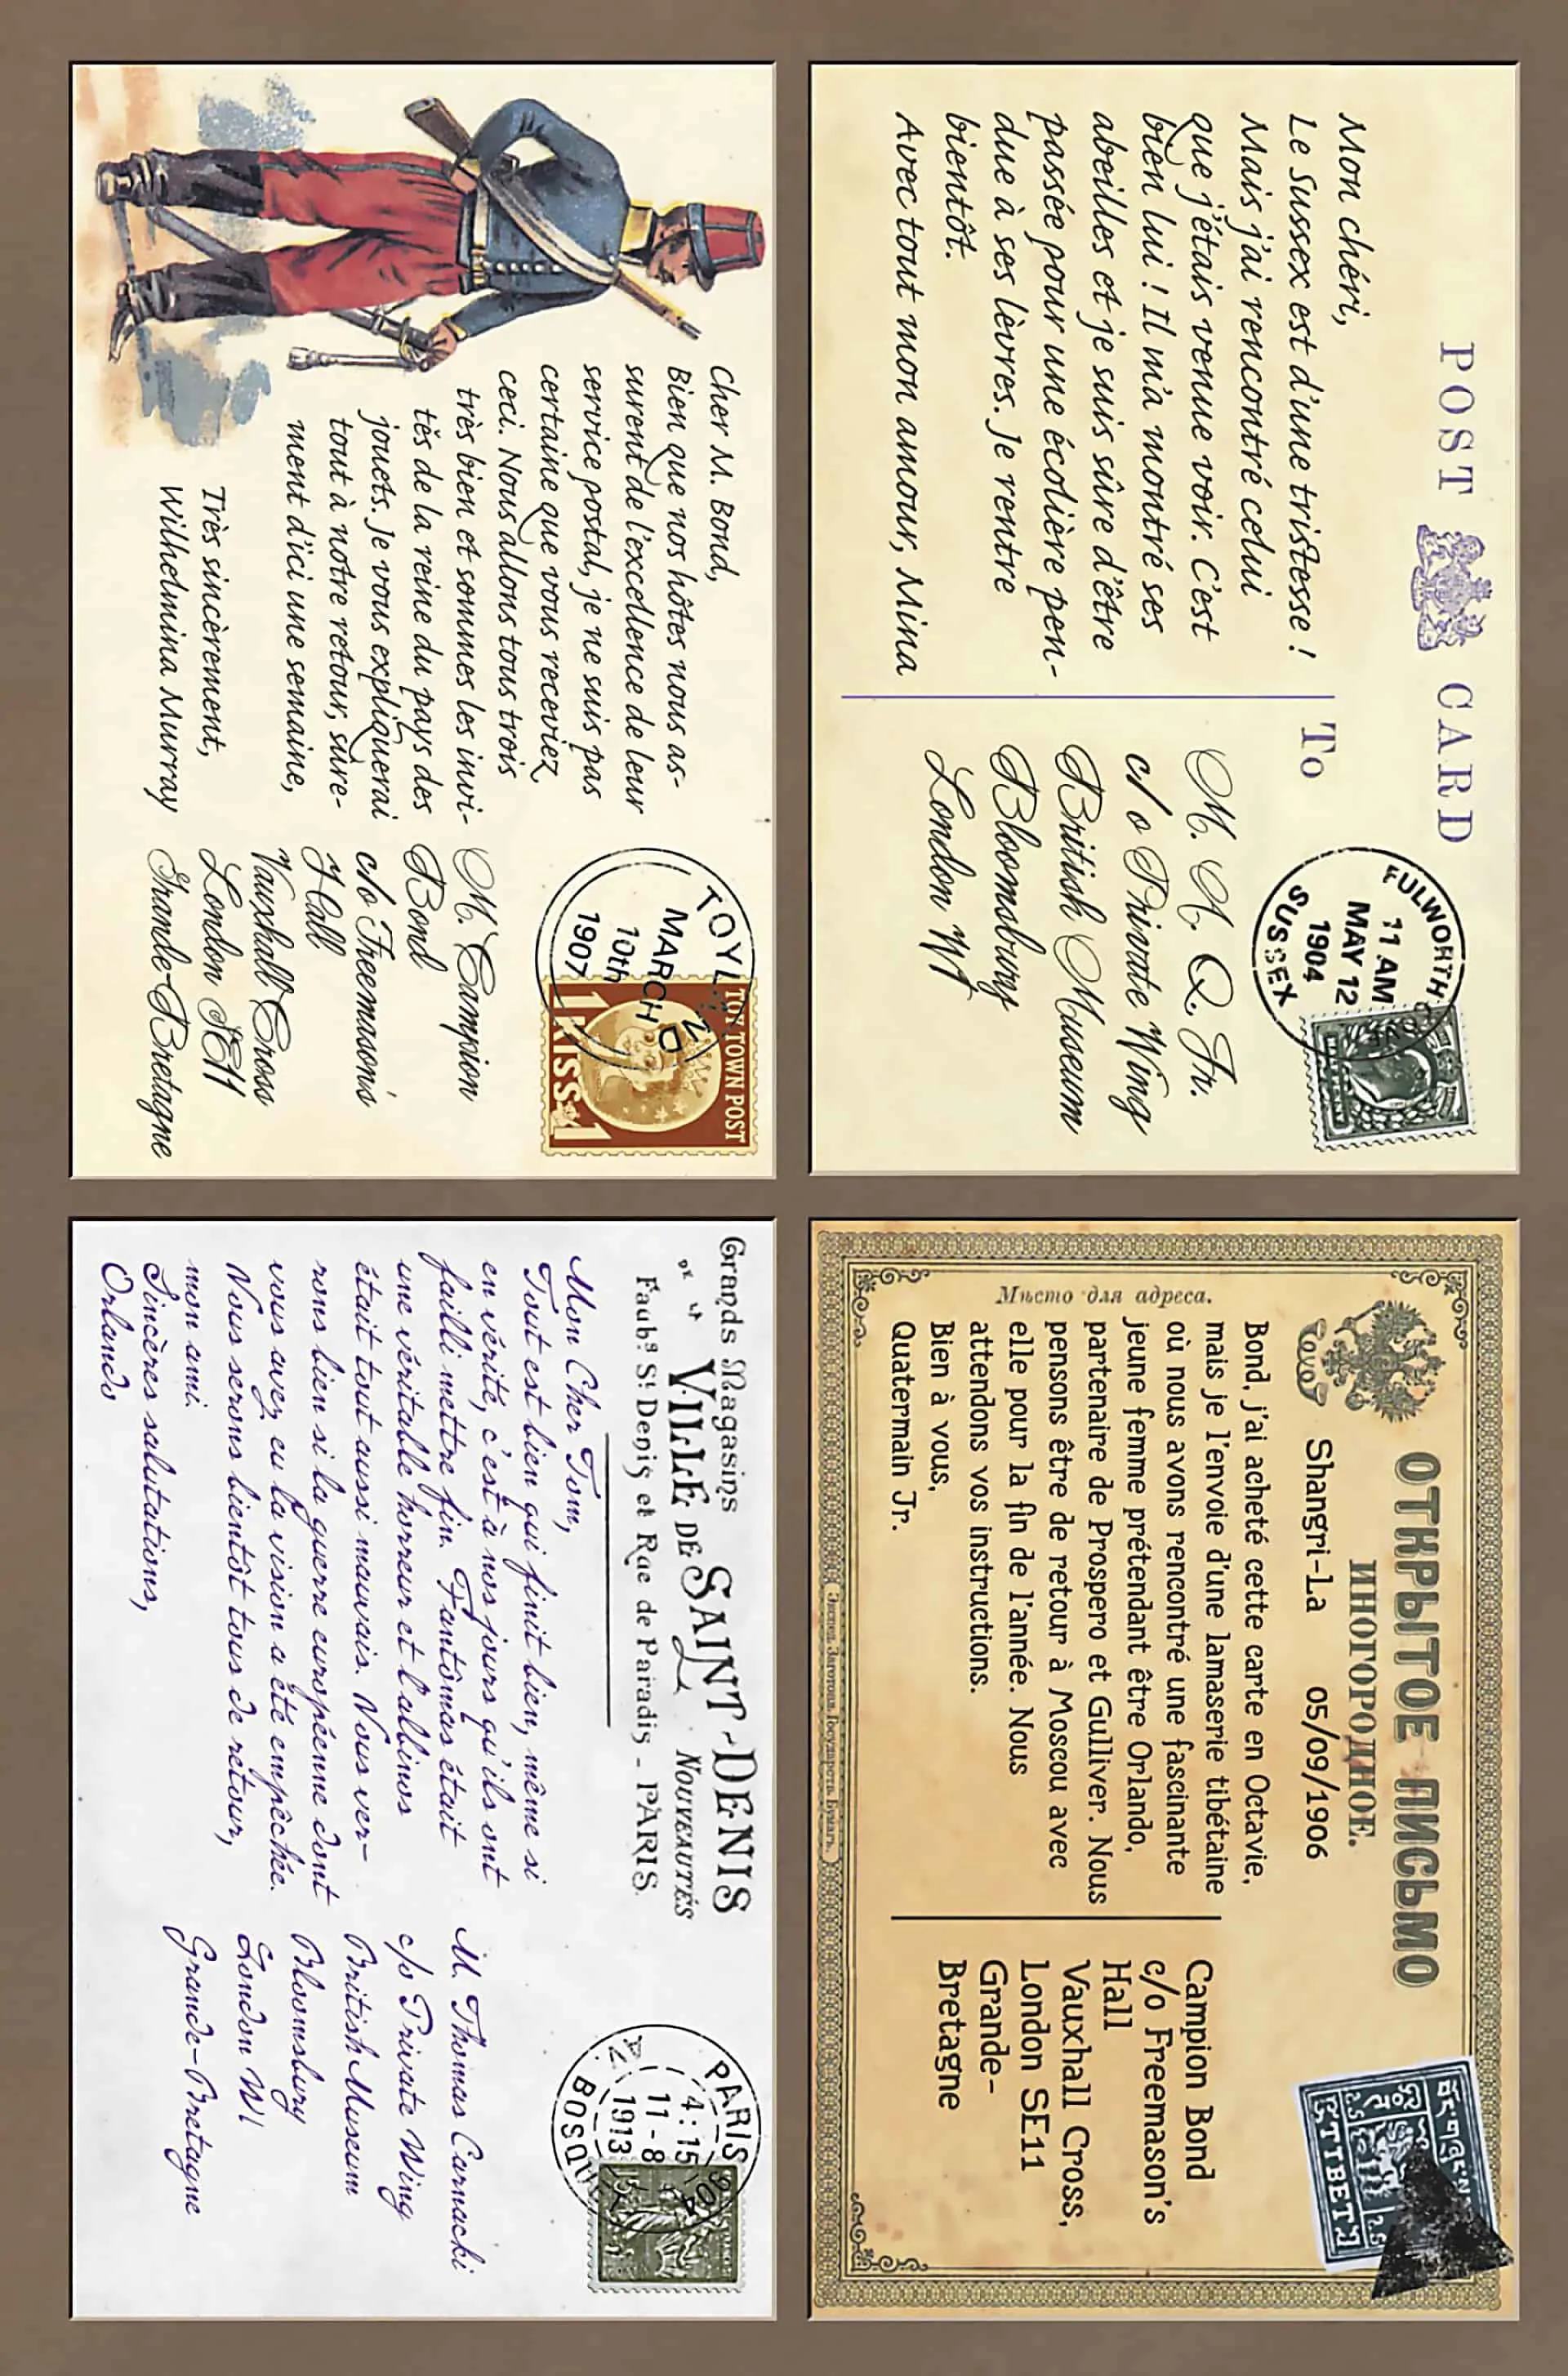 POST CARD
Mon chéri,
Le Sussex est d'une tristesse !
Mais j'ai rencontré celui
que j'étais venue voir. C'est
bien lui ! Il m'a montré ses
abeilles et je suis sûre d'être
passée pour une écolière pen-
due à ses lèvres. Je rentre
bientôt.
Avec tout mon amour, Mina
To
M. A. Q. Jr.
c/o Private Wing
British Museum
Bloomsbury
London W1
FULWORTH
11 AM
MAY 12
1904
SUSSEX
ОТКРЫТОЕ ПИСЬМО
ИНОГОРОДНОЕ.
Shangri-La 05/09/1906
Bond, j'ai acheté cette carte en Octavie,
mais je l'envoie d'une lamaserie tibétaine
où nous avons rencontré une fascinante
jeune femme prétendant être Orlando,
partenaire de Prospero et Gulliver. Nous
pensons être de retour à Moscou avec
elle pour la fin de l'année. Nous
attendons vos instructions.
Bien à vous,
Quatermain Jr.
Мѣсто для адреса.
Campion Bond
c/o Freemason's
Hall
Vauxhall Cross,
London SE11
Grande-
Bretagne
TIBET
Cher M. Bond,
Bien que nos hôtes nous as-
surent de l'excellence de leur
service postal, je ne suis pas
certaine que vous receviez
ceci. Nous allons tous trois
très bien et sommes les invi-
tés de la reine du pays des
jouets. Je vous expliquerai
tout à notre retour, sûre-
ment d'ici une semaine,
Très sincèrement,
Wilhelmina Murray
MARCH
10th
1907
TOY TOWN POST
1 KISS 1
M. Campion
Bond
c/o Freemason's
Hall
Vauxhall Cross
London SE11
Grande-Bretagne
Grands Magasins
DE LA VILLE DE SAINT-DENIS
NOUVEAUTÉS
Faubg St Denis et Rue de Paradis - PARIS
Mon Cher Tom,
Tout est bien qui finit bien, même si
en vérité, c'est à nos jours qu'ils ont
failli mettre fin. Fantômas était
une véritable horreur et l'albinos
était tout aussi mauvais. Nous ver-
rons bien si la guerre européenne dont
vous avez eu la vision a été empêchée.
Nous serons bientôt tous de retour,
mon ami.
Sincères salutations,
Orlando
PARIS
4:15
11-8
1913
AV. BOSQU
M. Thomas Carnacki
c/o Private Wing
British Museum
Bloomsbury
London W1
Grande-Bretagne